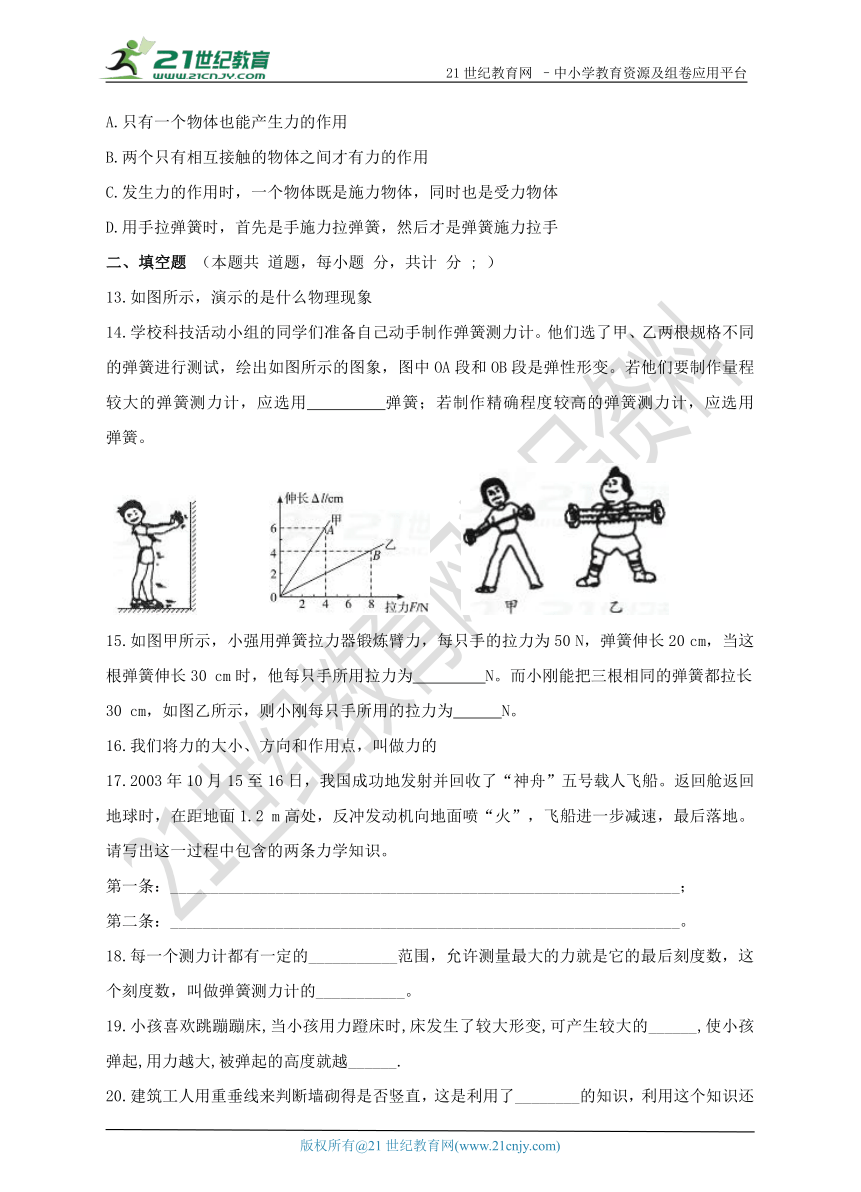 21世纪教育
WWW.21CNJY.COM
21世纪教育网 –中小学教育资源及组卷应用平台
A.只有一个物体也能产生力的作用
B.两个只有相互接触的物体之间才有力的作用
C.发生力的作用时，一个物体既是施力物体，同时也是受力物体
D.用手拉弹簧时，首先是手施力拉弹簧，然后才是弹簧施力拉手
二、填空题 （本题共 道题，每小题 分，共计 分 ; ）
13.如图所示，演示的是什么物理现象
14.学校科技活动小组的同学们准备自己动手制作弹簧测力计。他们选了甲、乙两根规格不同
的弹簧进行测试，绘出如图所示的图象，图中OA段和OB段是弹性形变。若他们要制作量程
较大的弹簧测力计，应选用__________弹簧；若制作精确程度较高的弹簧测力计，应选用
弹簧。
伸长Δl/cm
甲
6 A
乙
4 B
2
0 2 4 6 8 拉力F/N
甲 乙
15.如图甲所示，小强用弹簧拉力器锻炼臂力，每只手的拉力为50 N，弹簧伸长20 cm，当这
根弹簧伸长30 cm时，他每只手所用拉力为_________N。而小刚能把三根相同的弹簧都拉长
30 cm，如图乙所示，则小刚每只手所用的拉力为______N。
16.我们将力的大小、方向和作用点，叫做力的
17.2003年10月15至16日，我国成功地发射并回收了“神舟”五号载人飞船。返回舱返回
地球时，在距地面1.2 m高处，反冲发动机向地面喷“火”，飞船进一步减速，最后落地。
请写出这一过程中包含的两条力学知识。
第一条：________________________________________________________________；
第二条：________________________________________________________________。
18.每一个测力计都有一定的___________范围，允许测量最大的力就是它的最后刻度数，这
个刻度数，叫做弹簧测力计的___________。
19.小孩喜欢跳蹦蹦床,当小孩用力蹬床时,床发生了较大形变,可产生较大的______,使小孩
弹起,用力越大,被弹起的高度就越______.
20.建筑工人用重垂线来判断墙砌得是否竖直，这是利用了________的知识，利用这个知识还
版权所有@21世纪教育网(www.21cnjy.com)